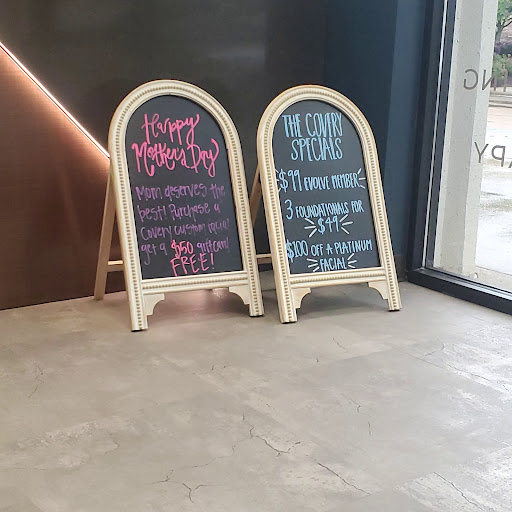 Happy
Mother's Day
Mom deserves the
best! Purchase a
Covery custom facial
get a $50 giftcard
FREE!
THE COVERY
SPECIALS
$99 EVOLVE MEMBER
3 FOUNDATIONALS FOR
$49
$100 OFF A PLATINUM
FACIAL
NG
APY